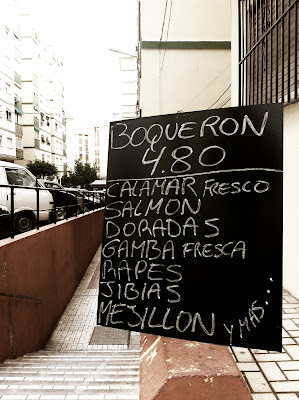 BOQUERON
4.80
CALAMAR FRESCO
SALMON
DORADAS
GAMBA FRESCA
RAPES
JIBIAS
MEJILLON Y MAS...